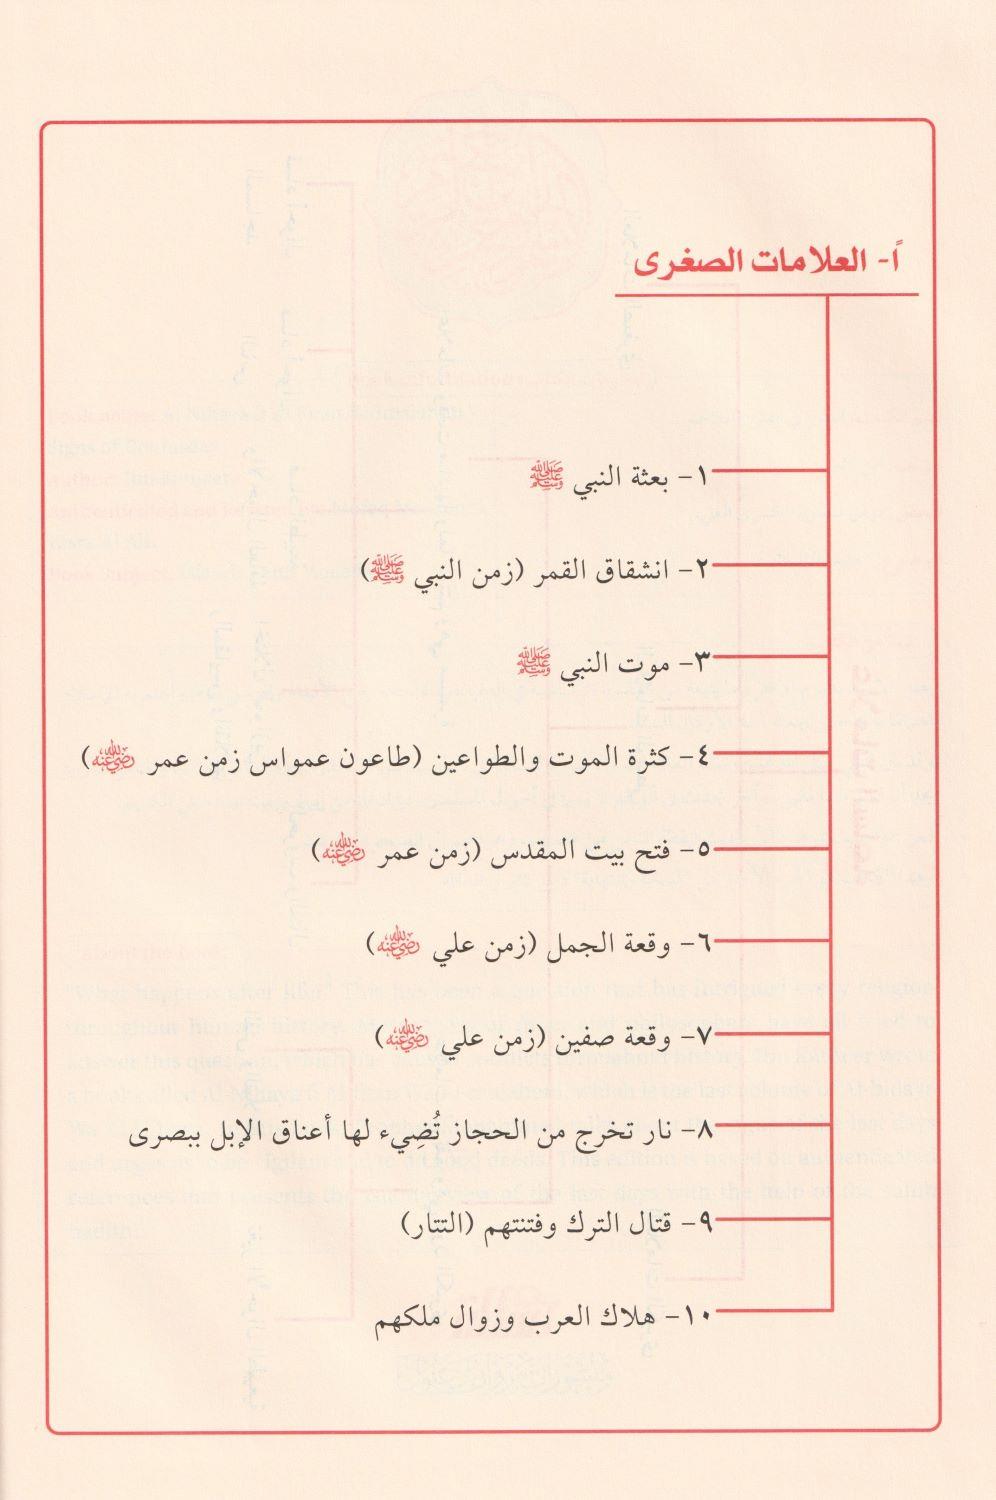 اً- العلامات الصغرى
١- بعثة النبي ﷺ
٢- انشقاق القمر (زمن النبي ﷺ)
٣- موت النبي ﷺ
٤- كثرة الموت والطواعين (طاعون عمواس زمن عمر رضي الله عنه)
٥- فتح بيت المقدس (زمن عمر رضي الله عنه)
٦- وقعة الجمل (زمن علي رضي الله عنه)
٧- وقعة صفين (زمن علي رضي الله عنه)
٨- نار تخرج من الحجاز تُضِيء لها أعناق الإبل ببصرى
٩- قتال الترك وفتنتهم (التتار)
١٠- هلاك العرب وزوال ملكهم